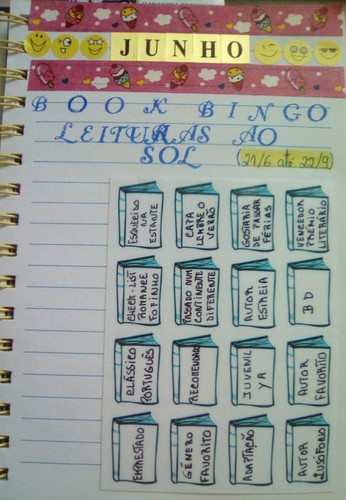 JUNHO
BOOK BINGO
LEITURAS AO
SOL (21/6 até 22/9)
ESQUECIDO
NA
ESTANTE
CAPA
LEMBRE O
VERÃO
GOSTARIA
DE PASSAR
FÉRIAS
VENCEDOR
PRÉMIO
LITERÁRIO
CHECK-LIST
ROMANCE
FOFINHO
PASSADO NUM
CONTINENTE
DIFERENTE
AUTOR
ESTREIA
BD
CLÁSSICO
PORTUGUÊS
RECOMENDADO
JUVENIL
YA
AUTOR
FAVORITO
EMPRESTADO
GÉNERO
FAVORITO
ADAPTAÇÃO
AUTOR
LUSÓFONO